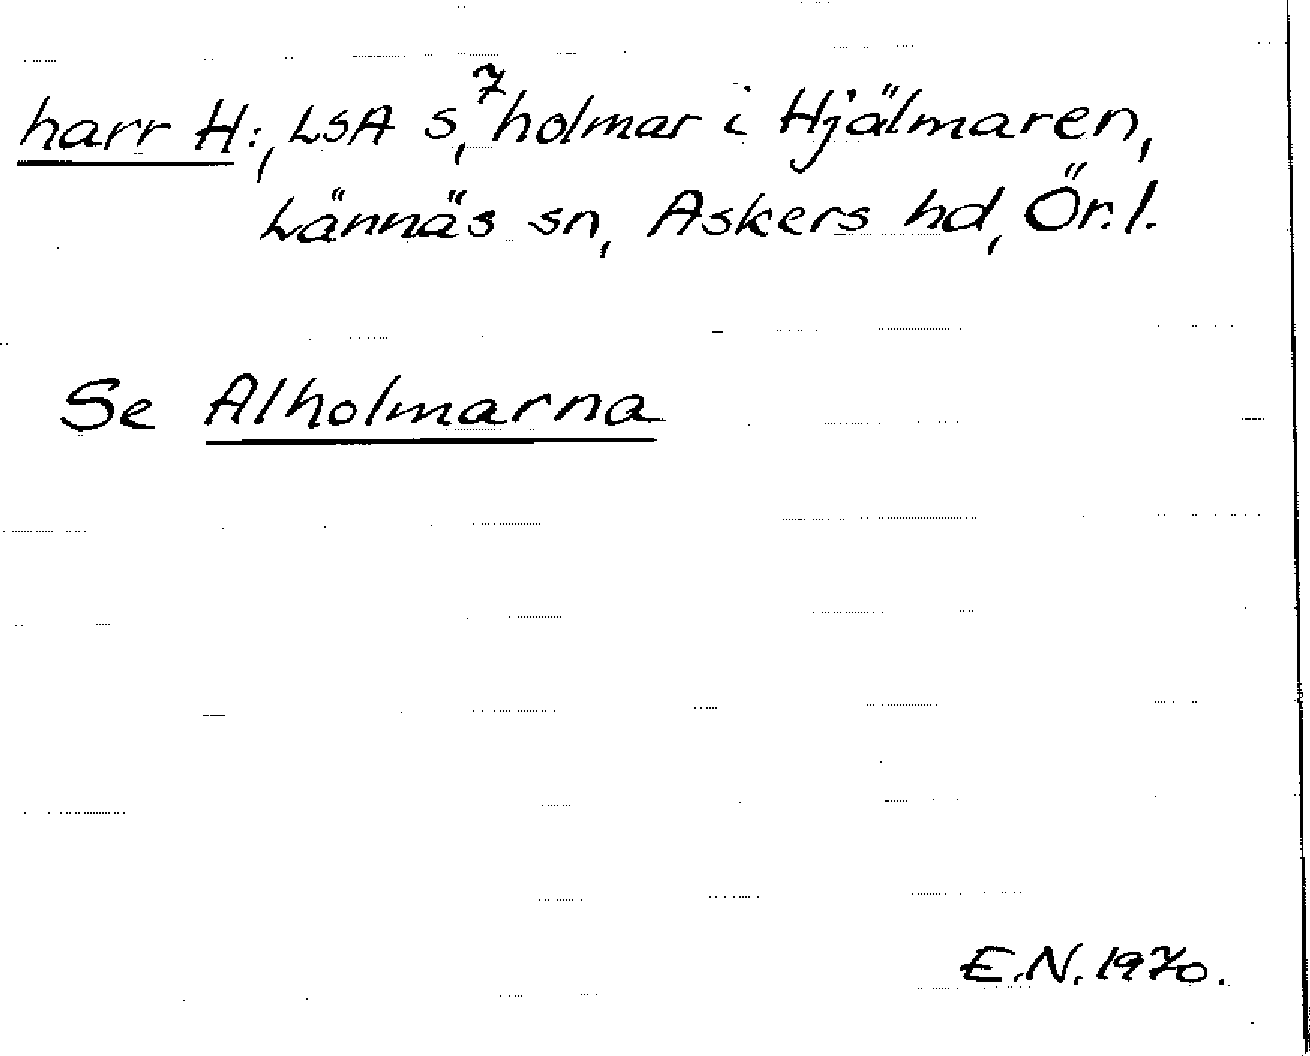 harr H:, LSA s, 7 holmar i Hjälmaren,
Lännäs sn, Askers hd, Ör.l.
Se Alholmarna
E.N. 1970.